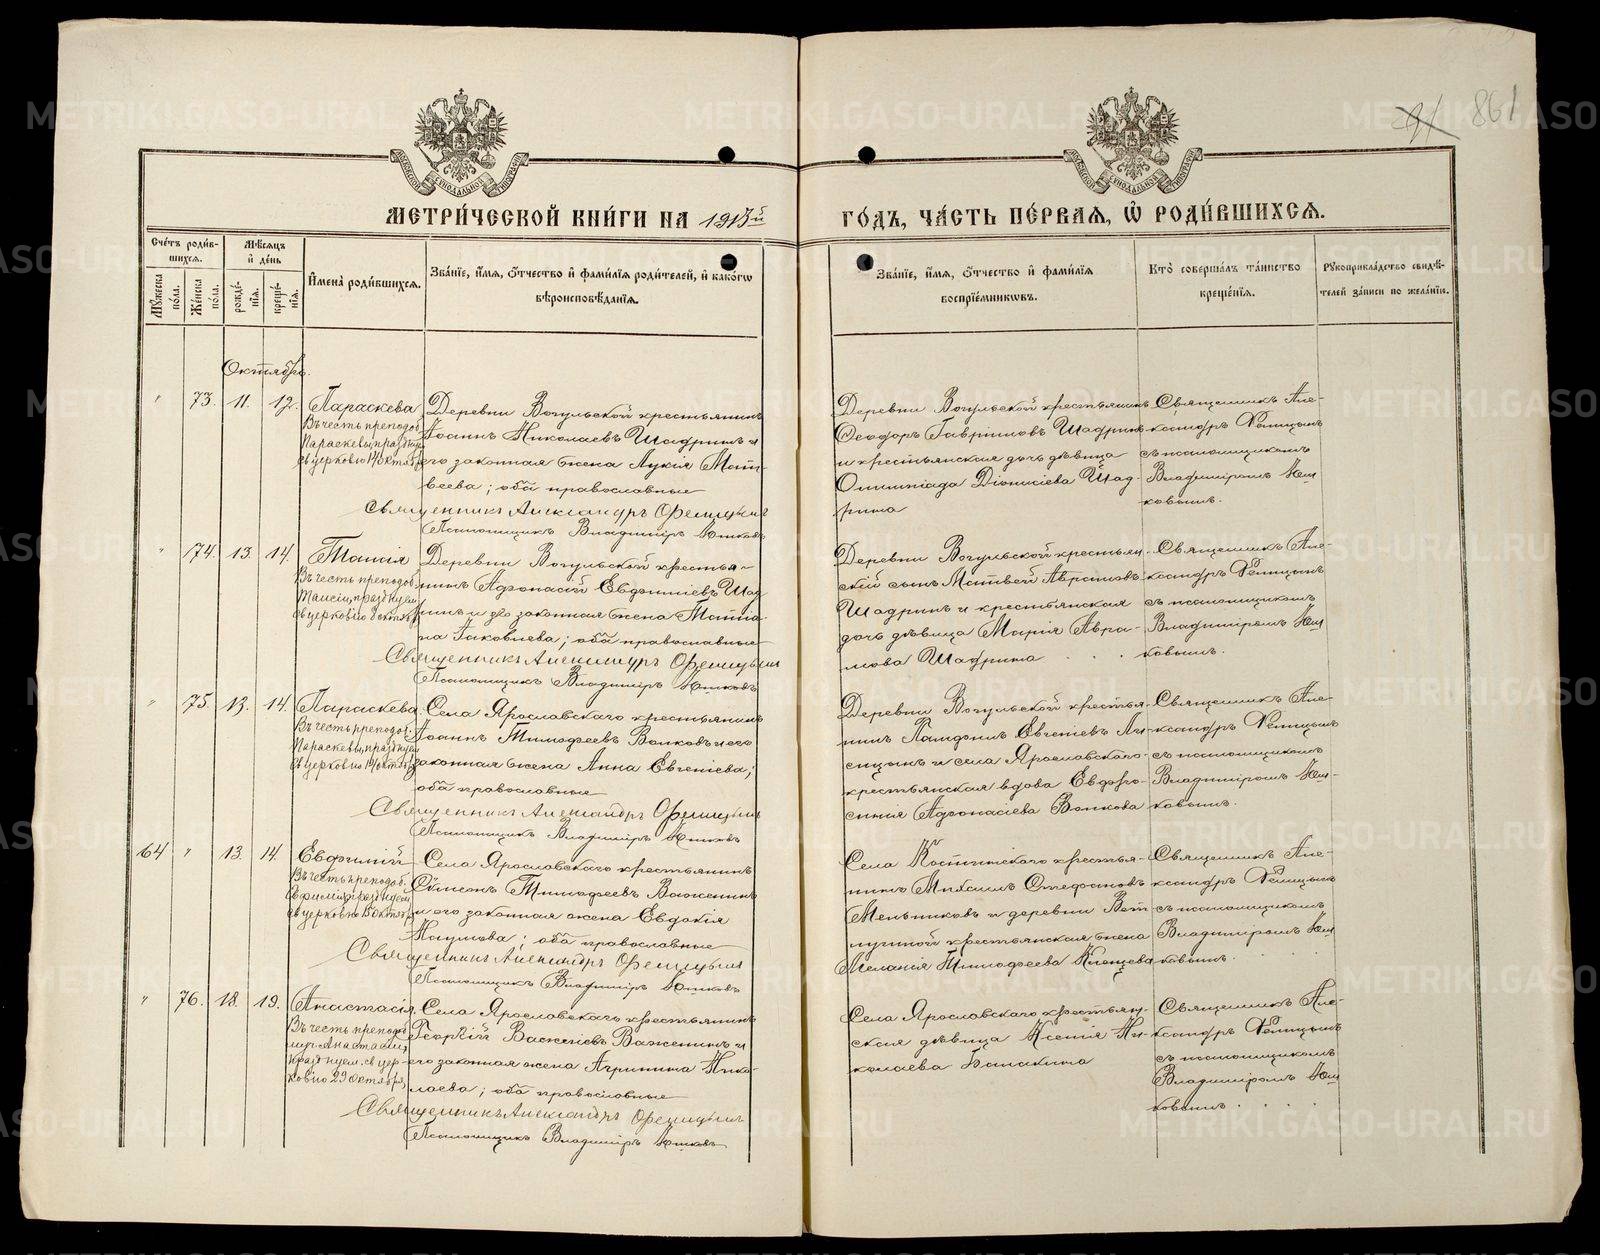 861
Метри́ческой кни́ги на 1913й
го́дъ, ча́сть пе́рвая, ѡ҆ роди́вшихся.
Сче́тъ роди́в-
шихся.
Мꙋ́жеска по́ла.
Же́нска по́ла.
Мѣ́сяцъ
и҆ де́нь
рожде́нїя.
креще́нїя.
И҆мена̀ роди́вшихся.
Зва́нїе, и҆́мя, о҆́тчество и҆ фами́лїя роди́телей, и҆ како́гѡ
вѣроисповѣ́данїя.
Зва́нїе, и҆́мя, о҆́тчество и҆ фами́лїя
воспрїе́мникѡвъ.
Кто̀ соверша́лъ та́инство
креще́нїя.
Рꙋкоприкла́дство свидѣ́-
телей за́писи по жела́нїю.
Октябрь.
" 73. 11. 12.
Параскева
Въ честь преподоб.
Параскевы, празднуем.
св. церковію 14 октября
Деревни Вогульской крестьянинъ
Іоаннъ Николаевъ Шадринъ и
его законная жена Лукія Мат-
веева; оба православные
Священникъ Александръ Ѳелицынъ
Псаломщикъ Владиміръ Юшковъ
Деревни Вогульской крестьянинъ
Ѳеодоръ Гавриловъ Шадринъ
и крестьянская дочь девица
Олимпіада Діонисіева Шад-
рина
Священникъ Але-
ксандръ Ѳелицынъ
съ псаломщикомъ
Владиміромъ Юш
ковымъ.
" 74. 13. 14.
Таисія
Въ честь преподоб.
Таисіи, празднуем.
св. церковію 8 октября
Деревни Вогульской крестья-
нинъ Афонасій Евфиміевъ Шад
ринъ и его законная жена Татіа-
на Іаковлева; оба православные
Священникъ Александръ Ѳелицынъ
Псаломщикъ Владиміръ Юшковъ
Деревни Вогульской крестьян-
скій сынъ Матвей Аврамовъ
Шадринъ и крестьянская
дочь девица Марія Авра-
мова Шадрина
Священникъ Але-
ксандръ Ѳелицынъ
съ псаломщикомъ
Владиміромъ Юш
ковымъ.
" 75. 13. 14.
Параскева
Въ честь преподоб.
Параскевы, празднуем.
св. церковію 14 октября
Села Ярославскаго крестьянинъ
Іоаннъ Тимофеевъ Волковъ и его
законная жена Анна Евгеніева;
оба православные
Священникъ Александръ Ѳелицынъ
Псаломщикъ Владиміръ Юшковъ
Деревни Вогульской крестья-
нинъ Памфилъ Евгеніевъ Ли-
сицынъ и села Ярославскаго
крестьянская вдова Евдо-
Афонасіева Волкова
Священникъ Але-
ксандръ Ѳелицынъ
съ псаломщикомъ
Владиміромъ Юш-
ковымъ.
64 " 13. 14.
Евфимій
Въ честь преподоб.
Евфимія, празднуем.
св. церковію 15 октября
Села Ярославскаго крестьянинъ
Симеонъ Тимофеевъ Важенинъ
и его законная жена Евдокія
Наумова; оба православные
Священникъ Александръ Ѳелицынъ
Псаломщикъ Владиміръ Юшковъ
Села крестья-
нинъ Михаилъ Стефановъ
Мельниковъ и деревни Вет
лугиной крестьянская жена
Меланія Тимофеева Клещева
Священникъ Але-
ксандръ Ѳелицынъ
съ псаломщикомъ
Владиміромъ Юш
ковымъ.
" 76. 18. 19.
Анастасія
Въ честь преподоб.
муч. Анастасіи,
празднуем. св. цер-
ковію 29 октября.
Села Ярославскаго крестьянинъ
Георгій Важенинъ и
его законная жена Агрипина Нико-
лаева; оба православные
Священникъ Александръ Ѳелицынъ
Псаломщикъ Владиміръ Юшковъ
Села Ярославскаго крестьян-
ская девица Ксенія Ни-
колаева Балакина
Священникъ Але-
ксандръ Ѳелицынъ
съ псаломщикомъ
Владиміромъ Юш
ковымъ.
METRIKI.GASO-URAL.RU